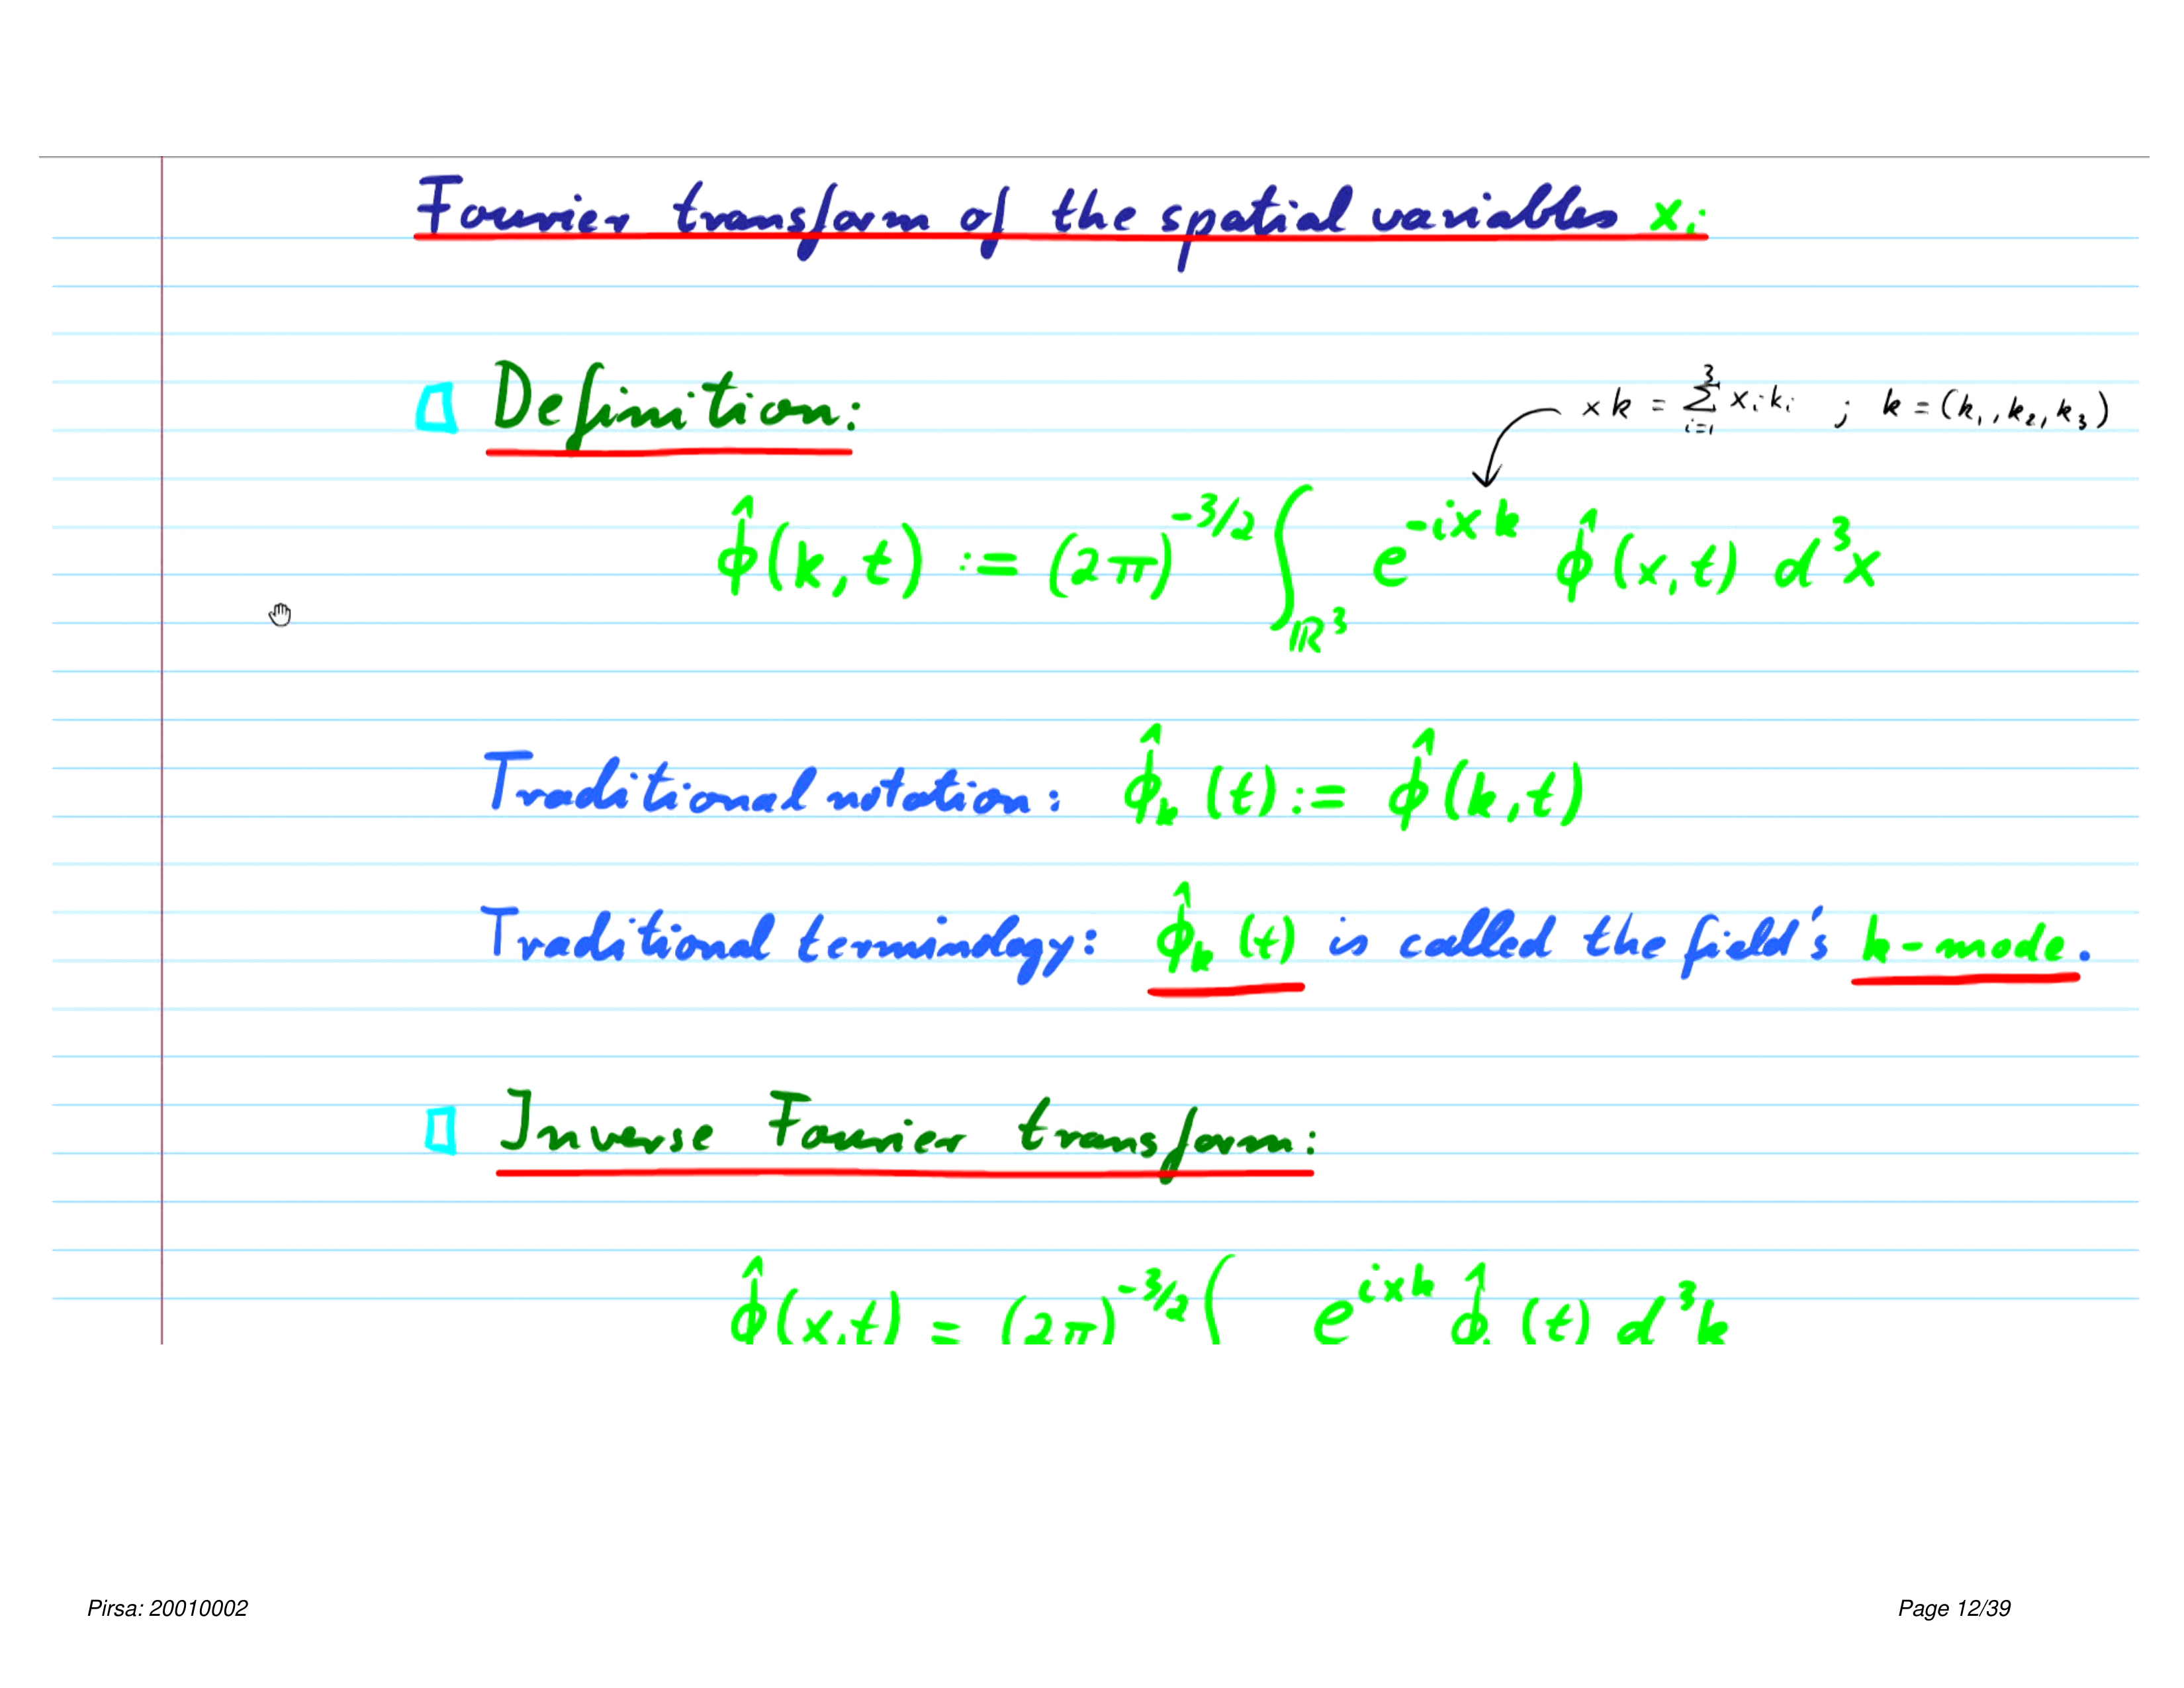 Fourier transform of the spatial variables xᵢ
Definition:
xk = Σ³ᵢ₌₁ xᵢkᵢ ; k = (k₁, k₂, k₃)
φ̂(k,t) := (2π)^{-3/2} ∫_{ℝ³} e^{-ixk} φ̂(x,t) d³x
Traditional notation: φ̂ₖ(t) := φ̂(k,t)
Traditional terminology: φ̂ₖ(t) is called the field's k-mode.
Inverse Fourier transform:
φ̂(x,t) = (2π)^{-3/2} ∫ e^{ixk} φ̂ (t) d³k
Pirsa: 20010002
Page 12/39